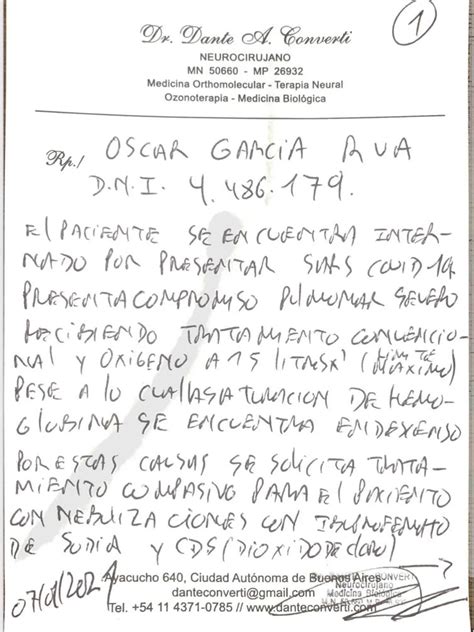 1
Dr. Dante A. Converti
NEUROCIRUJANO
MN 50660 - MP 26932
Medicina Orthomolecular - Terapia Neural
Ozonoterapia - Medicina Biológica
Rp./ OSCAR GARCIA RUA
D.N.I. 4.486.179.
El PACIENTE SE ENCUENTRA INTER-
NADO POR PRESENTAR SARS COVID 19
PRESENTA COMPROMISO PULMONAR SEVERO
RECIBIENDO TRATAMIENTO CONVENCIO-
NAL Y OXIGENO A 15 LITROS X' (MAXIMO)
PESE A LO CUAL LA SATURACION DE HEMO-
GLOBINA SE ENCUENTRA EN DEXENSO
POR ESTAS CAUSAS SE SOLICITA TRATA-
MIENTO COMPASIVO PARA El PACIENTE
CON NEBULIZACIONES CON IBUPROFENATO
DE SODIO Y CDS (DIOXIDO DE CLORO)
07/01/2021
Ayacucho 640, Ciudad Autónoma de Buenos Aires
danteconverti@gmail.com
Tel. +54 11 4371-0785 // www.danteconverti.com
CONVERTI
Neurocirujano
Medicina Biológica